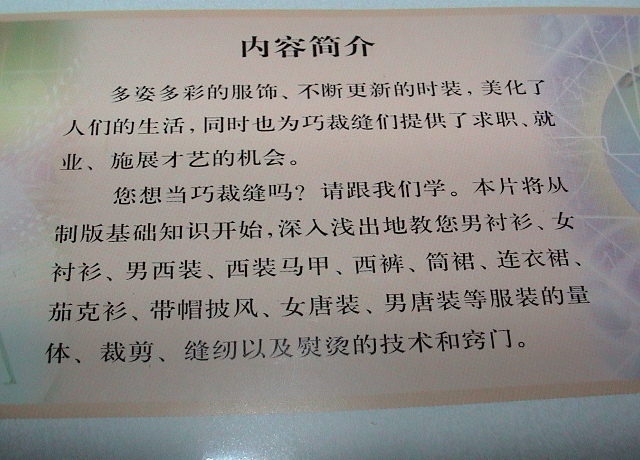 内容简介
多姿多彩的服饰、不断更新的时装，美化了
人们的生活，同时也为巧裁缝们提供了求职、就
业、施展才艺的机会。
您想当巧裁缝吗？请跟我们学。本片将从
制版基础知识开始，深入浅出地教您男衬衫、女
衬衫、男西装、西装马甲、西裤、筒裙、连衣裙、
茄克衫、带帽披风、女唐装、男唐装等服装的量
体、裁剪、缝纫以及熨烫的技术和窍门。